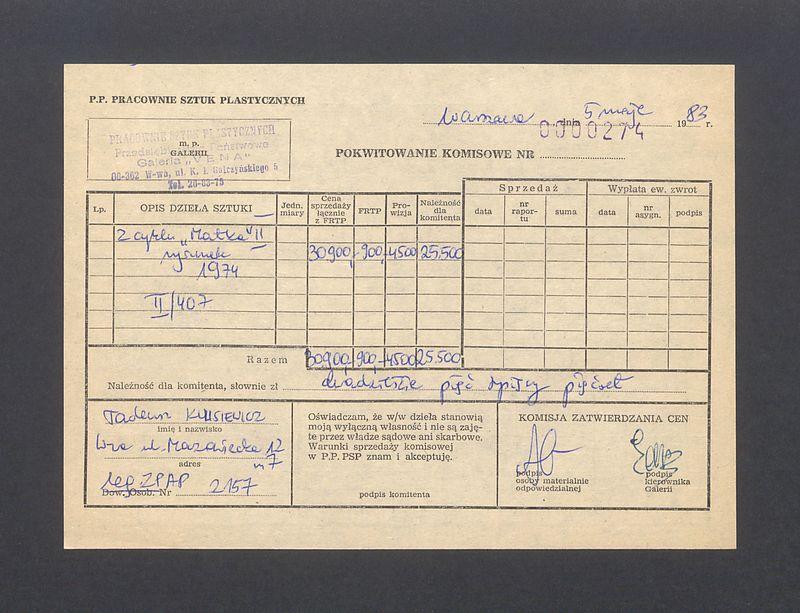 P.P. PRACOWNIE SZTUK PLASTYCZNYCH
Warszawa dnia 5 maja 1983 r.
0000274
PRACOWNIE SZTUK PLASTYCZNYCH
Przedsiębiorstwo Państwowe
m. p.
GALERII
Galeria „VENA"
00-362 W-wa, ul. K. I. Gałczyńskiego 5
Tel. 26-63-75
POKWITOWANIE KOMISOWE NR
Lp. OPIS DZIEŁA SZTUKI Jedn. miary Cena sprzedaży łącznie z FRTP FRTP Prowizja Należność dla komitenta
Sprzedaż Wypłata ew. zwrot
data nr raportu suma data nr asygn. podpis
z cyklu „Matka" II
rysunek 30.900,- 900,- 4500 25.500
1974
II/407
Razem 30900,- 900,- 4500 25.500
Należność dla komitenta, słownie zł dwadzieścia pięć tysięcy pięćset
Tadeusz KULISIEWICZ
imię i nazwisko
W-wa ul. Mazowiecka 12
m 7
adres
leg ZPAP
Dow. Osob. Nr 2157
Oświadczam, że w/w dzieła stanowią
moją wyłączną własność i nie są zaję-
te przez władze sądowe ani skarbowe.
Warunki sprzedaży komisowej
w P.P. PSP znam i akceptuję.
podpis komitenta
KOMISJA ZATWIERDZANIA CEN
podpis
osoby materialnie
odpowiedzialnej
podpis
kierownika
Galerii